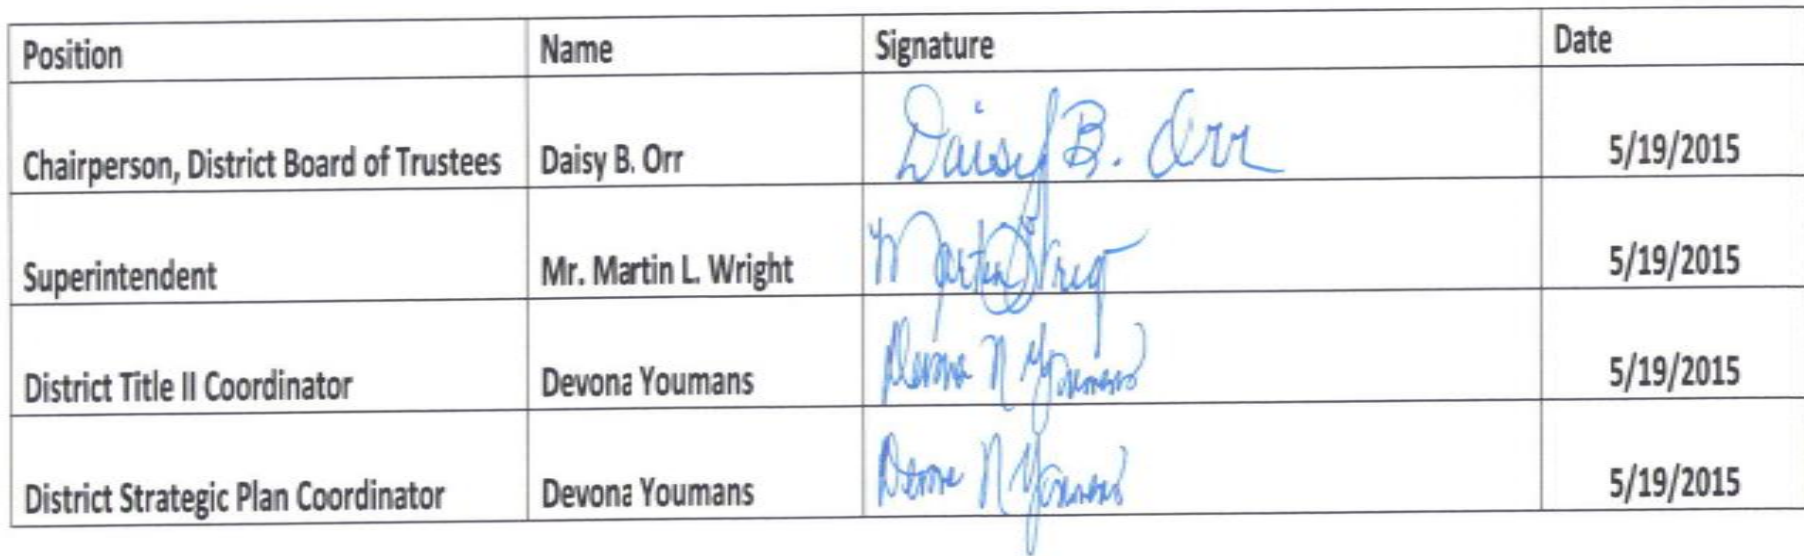 Position Name Signature Date
Chairperson, District Board of Trustees Daisy B. Orr Daisy B. Orr 5/19/2015
Superintendent Mr. Martin L. Wright Martin L Wright 5/19/2015
District Title II Coordinator Devona Youmans Devona N Youmans 5/19/2015
District Strategic Plan Coordinator Devona Youmans Devona N Youmans 5/19/2015